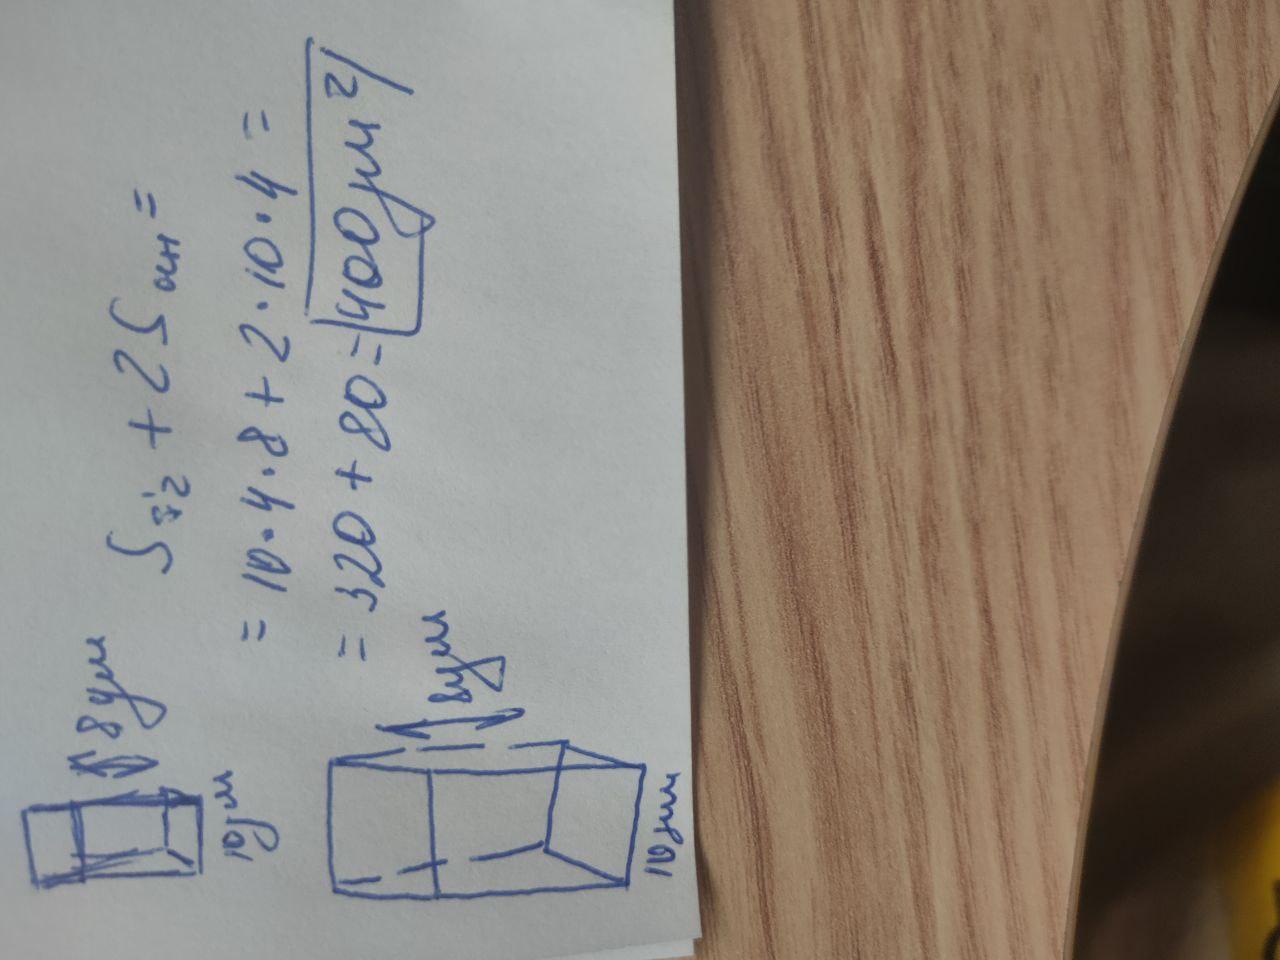 8дм
10дм
S біч + 2 S осн =
= 10 · 4 · 8 + 2 · 10 · 4 =
= 320 + 80 = 400 дм²
8дм
10дм